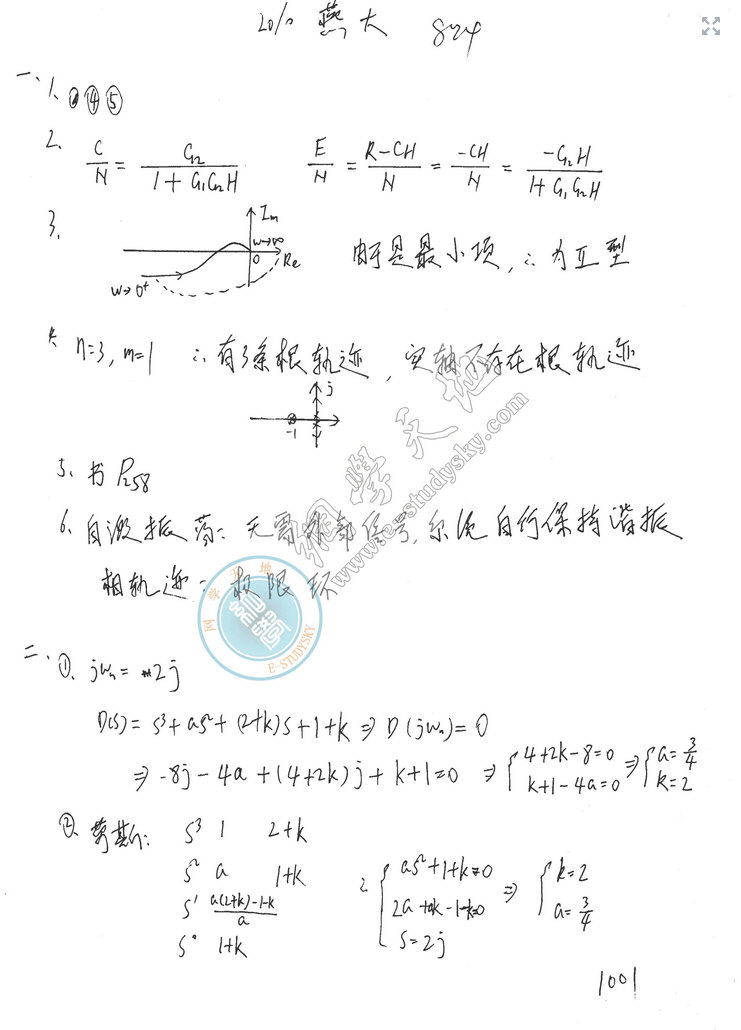 2010 燕大 824
一、1、①④⑤
2、 C/N = G₂/(1+G₁G₂H) E/N = (R-CH)/N = -CH/N = -G₂H/(1+G₁G₂H)
3、 Im
ω→∞
0 Re
ω→0⁺
由于是最小项,∴为Ⅱ型
4、 n=3, m=1 ∴有3条根轨迹,实轴不存在根轨迹
j
-1
5、书 P₂₅₈
6、自激振荡:无需外部信号,系统自行保持谐振
相轨迹:极限环
二、①、jωₙ = 2j
D(s) = s³+as²+(2+k)s+1+k ⇒ D(jωₙ)=0
⇒ -8j-4a+(4+2k)j+k+1=0 ⇒ { 4+2k-8=0 k+1-4a=0 ⇒ { a=3/4 k=2
②、劳斯: s³ 1 2+k
s² a 1+k
s¹ (a(2+k)-1-k)/a
s⁰ 1+k
∴ { as²+1+k=0 2a+ak-1-k=0 s=2j ⇒ { k=2 a=3/4
1001
网学天地
www.e-studysky.com
网学天地
E-STUDYSKY